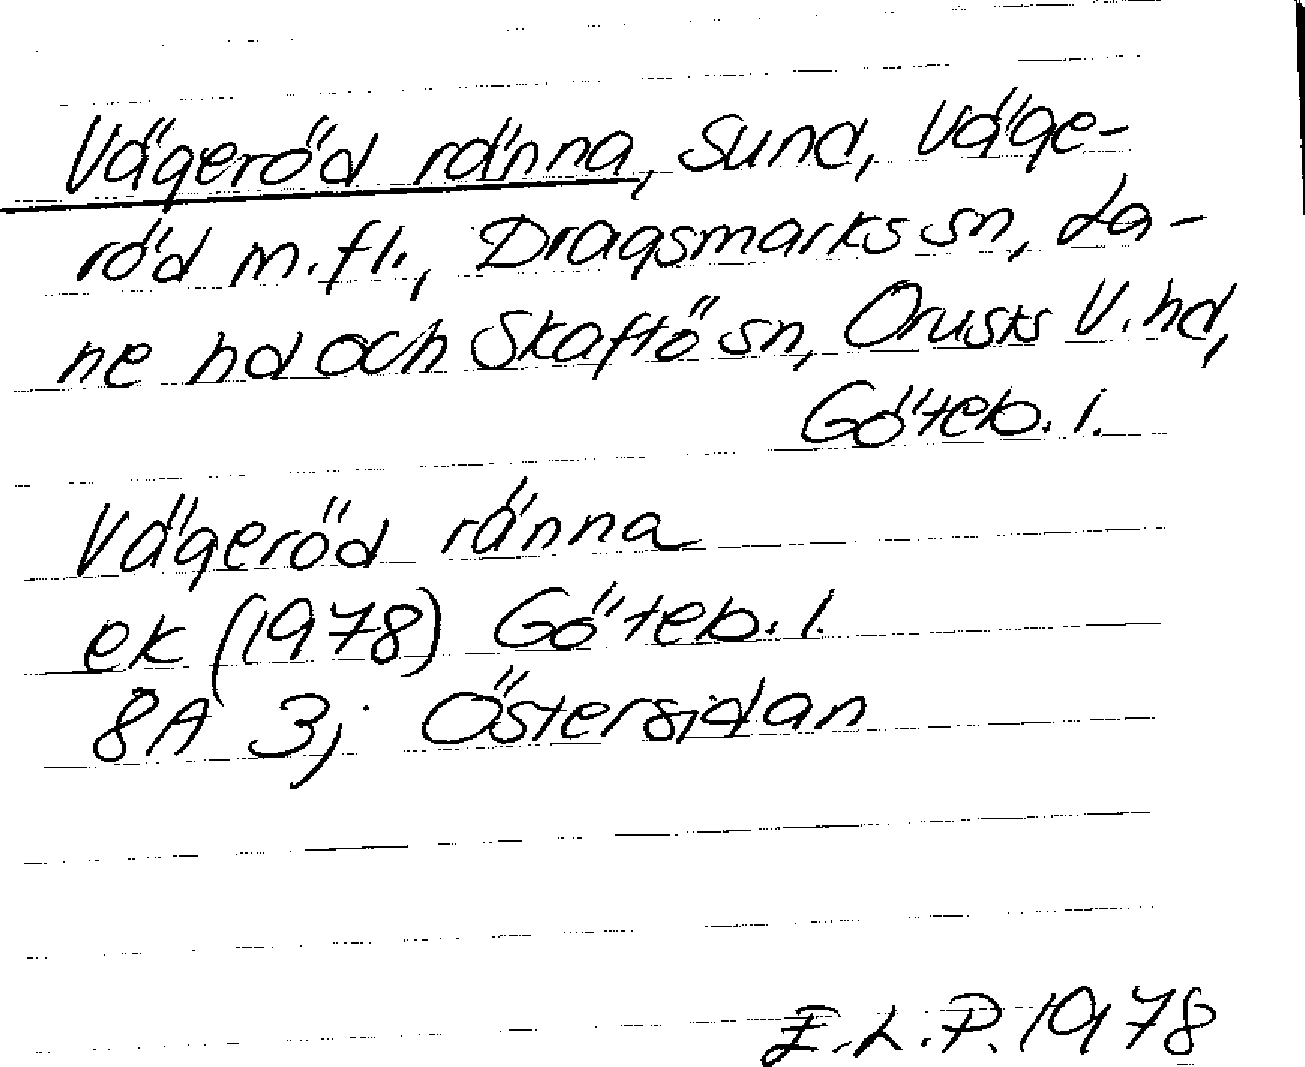 Vägeröd ränna, Sund, Väge-
röd m.fl., Dragsmarks sn, La-
ne hd och Skaftö sn, Orusts V. hd,
Göteb. l.
Vägeröd ränna
ek (1978) Göteb. l.
8A 3; Östersidan
E.L.P. 1978